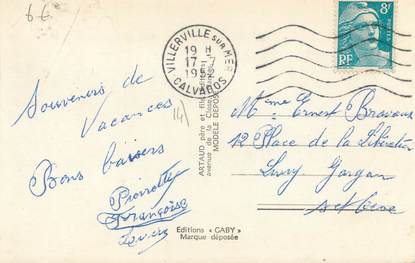 6 €
VILLERVILLE SUR MER
19 H
17 - 7
CALVADOS
8F
POSTES
RF
Souvenirs de
Vacances
Bons baisers
Pierrette
Françoise
14
ARTAUD père et fils éditeurs
avenue de la
MODÈLE DÉPOSÉ
Editions « GABY »
Marque déposée
Mme Ernest
12 Place de la Libération
Livry Gargan